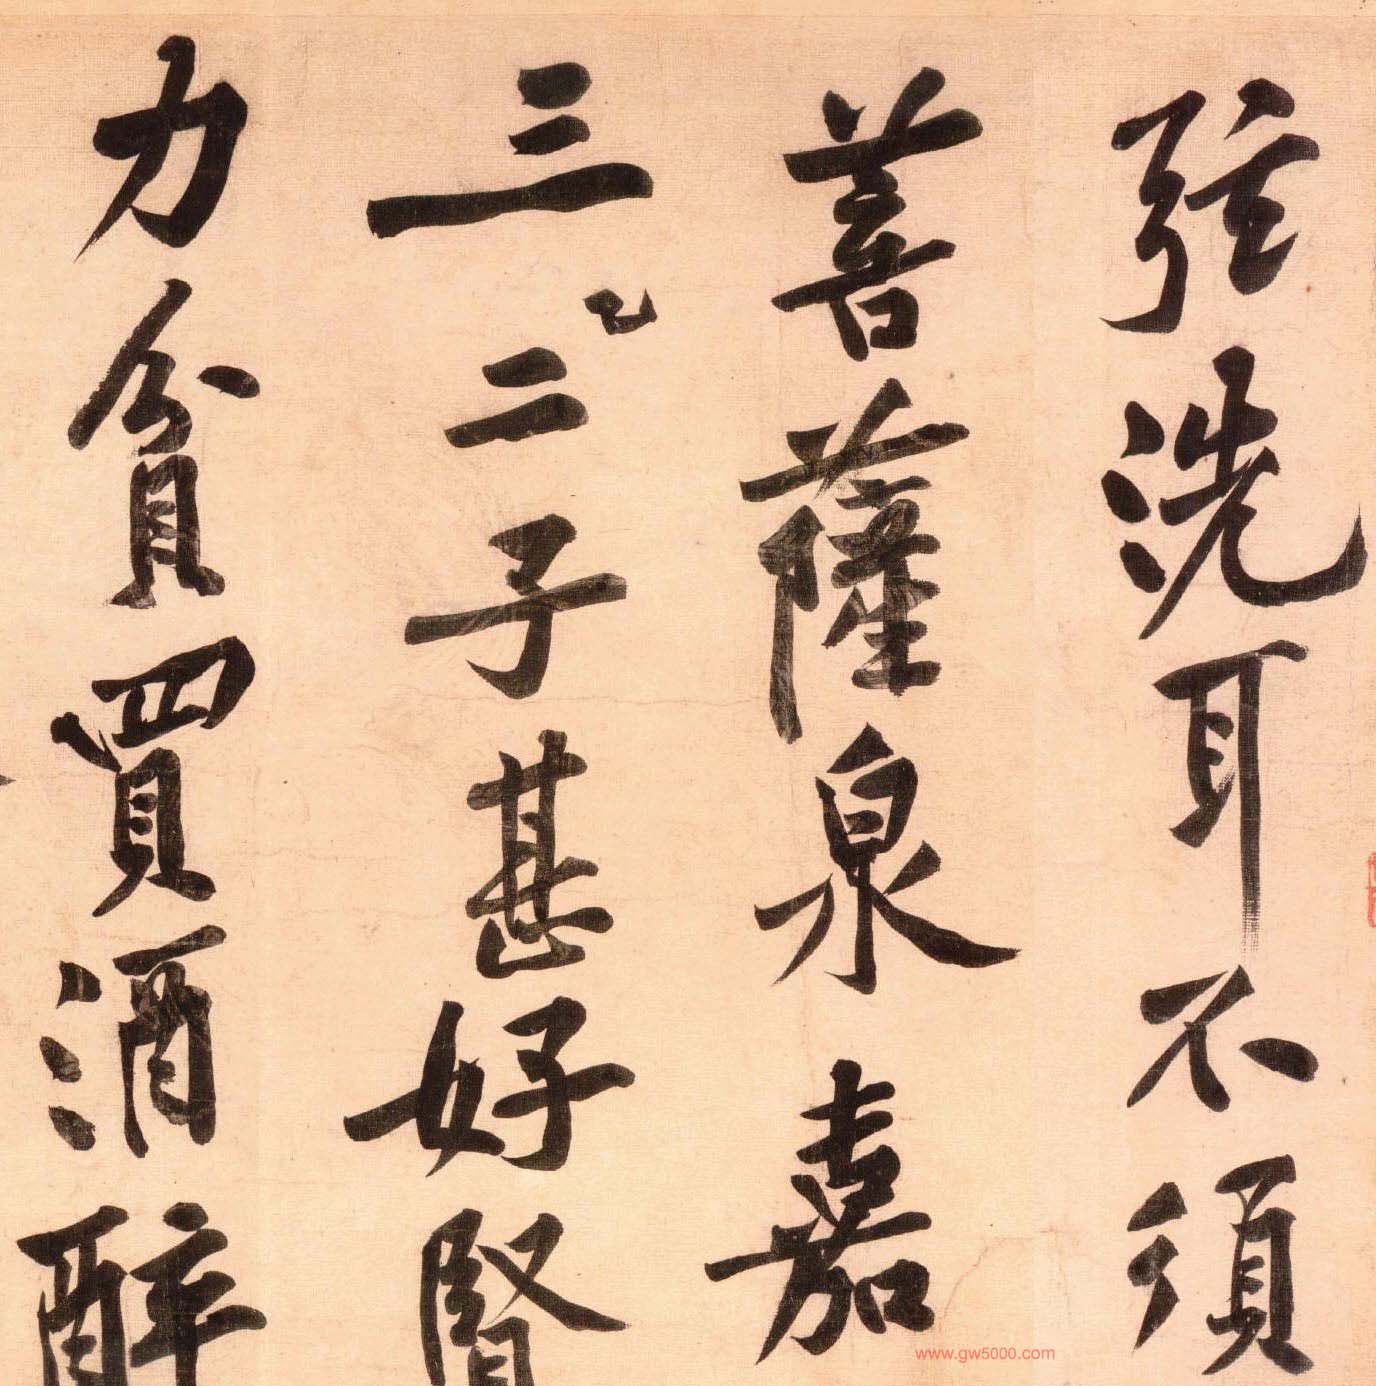 弦洗耳不須
菩薩泉嘉
三二子甚好賢
力貧買酒醉
www.gw5000.com